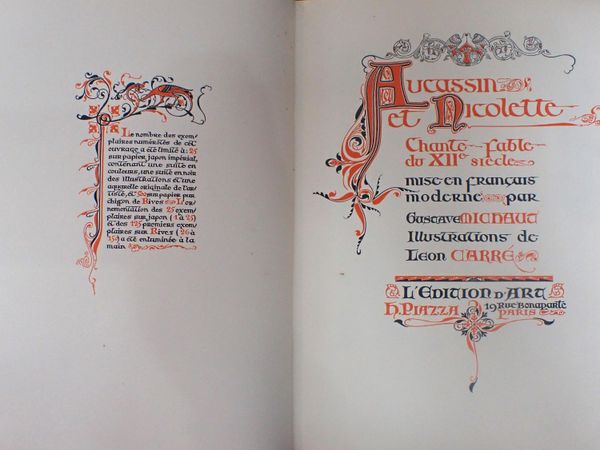 Le nombre des exem-
plaires numérotés de cet
ouvrage a été limité à: 25
sur papier japon impérial,
contenant une suite en
couleurs, une suite en noir
des illustrations et une
aquarelle originale de l'ar-
tiste, et sur papier pur
chiffon de Rives. L'or-
nementation des 25 exem-
plaires sur japon (1 à 25)
et des 125 premiers exem-
plaires sur Rives (26 à
150) a été enluminée à la
main
Aucassin
et Nicolette
Chante-Fable
du XIIe siècle
mise en français
moderne par
Gustave MICHAUT
Illustrations de
Leon CARRÉ
L'EDITION D'ART
H. PIAZZA 19 Rue Bonaparte
PARIS